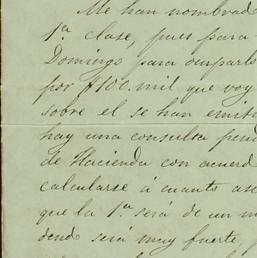 Me han nombrad
1ª clase, pues para
Domingo para ocuparlo
por $100. mil que voy
sobre el se han emiti
hay una consulta pend
de Hacienda con acuerd
calcularse á cuanto as
que la 1ª será de un m
dend será muy fuerte,